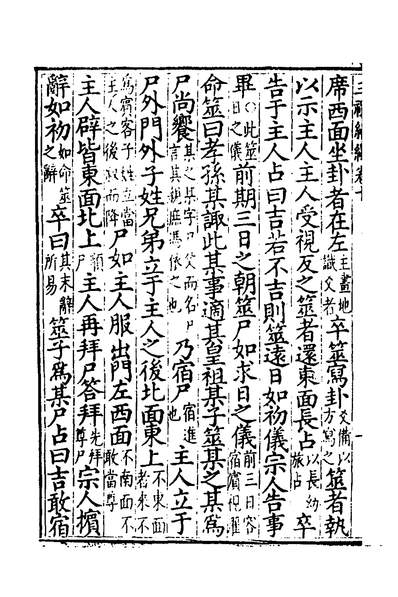 席西面坐卦者在左主畫地識爻者卒筮寫卦爻備以方寫之筮者執
以示主人主人受視反之筮者還東面長占以長幼旅占卒
告于主人占曰吉若不吉則筮遠日如初儀宗人告事
畢○此筮日之儀前期三日之朝筮尸如求日之儀前三日容宿賓視濯
命筮曰孝孫某諏此某事適其皇祖某子筮某之某為
尸尚饗某之某字尸父而名尸言其親庶馮依之也乃宿尸宿進也主人立于
尸外門外子姓兄弟立于主人之後北面東上不東面者來不
為賓客子姓立當主人之後尸如主人服出門左西面不南面不敢當尊
主人辟皆東面北上順尸主人再拜尸答拜先拜尊尸宗人擯
辭如初如命筮之辭卒曰其末辭所易筮子為某尸占曰吉敢宿